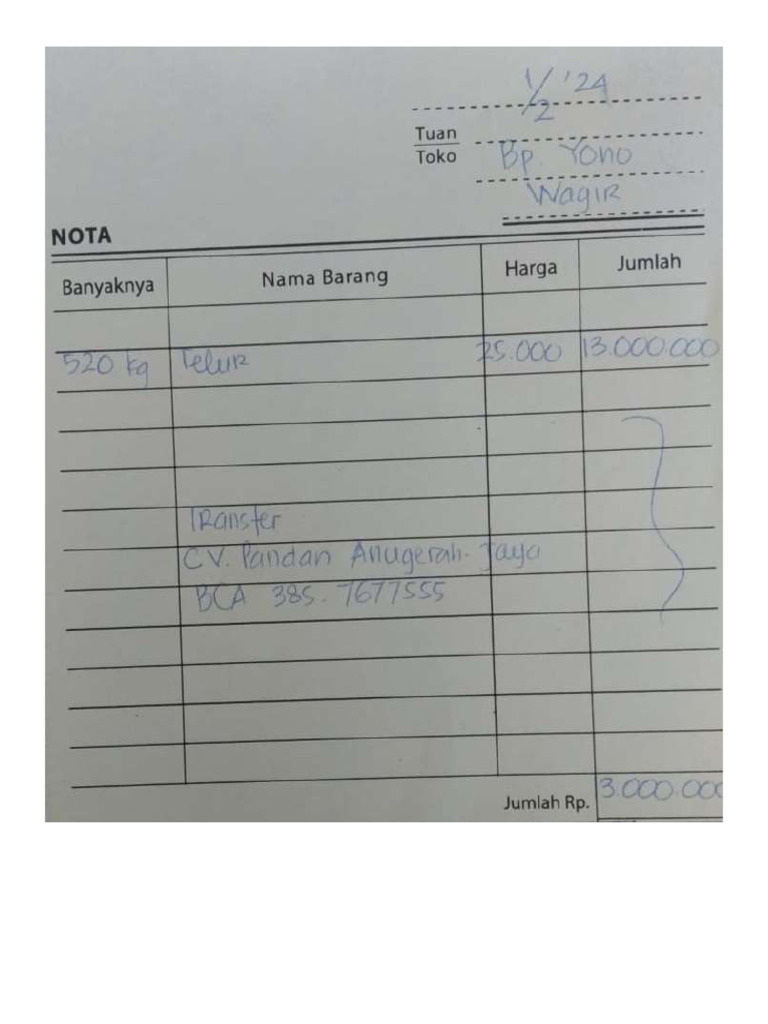 1/2 '24
Tuan
Toko
Bp. Yono
Wagir
NOTA
Banyaknya Nama Barang Harga Jumlah
520 kg Telur 25.000 13.000.000
Transfer
CV. Pandan Anugerah Jaya
BCA 385. 7677555
Jumlah Rp. 3.000.000